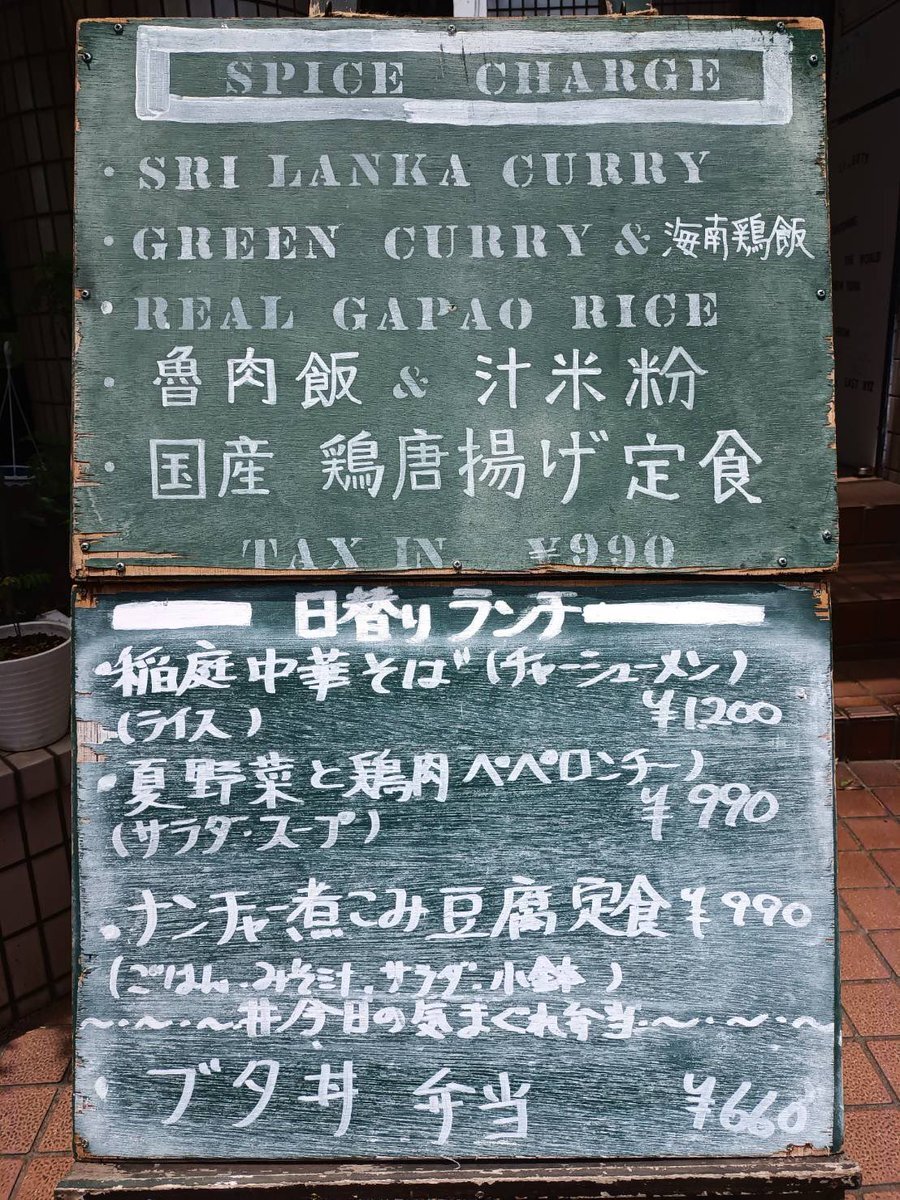 SPICE CHARGE
・SRI LANKA CURRY
・GREEN CURRY & 海南鶏飯
・REAL GAPAO RICE
・魯肉飯 & 汁米粉
・国産 鶏唐揚げ定食
TAX IN ¥990
日替りランチ
・稲庭中華そば(チャーシューメン)
(ライス) ¥1200
・夏野菜と鶏肉ペペロンチーノ
(サラダ・スープ) ¥990
・ナンチャー煮こみ豆腐定食 ¥990
(ごはん・みそ汁・サラダ・小鉢)
〜・〜・〜#今日の気まぐれ弁当・〜・〜・〜
・ブタ丼 弁当 ¥660